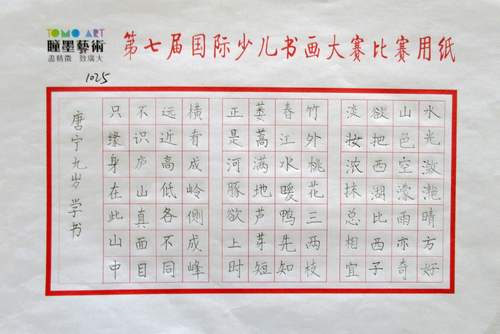 TOMO ART
瞳墨藝術
盡精微 致廣大
第七届国际少儿书画大赛比赛用纸
1025
水光潋滟晴方好
山色空濛雨亦奇
欲把西湖比西子
淡妆浓抹总相宜
竹外桃花三两枝
春江水暖鸭先知
蒌蒿满地芦芽短
正是河豚欲上时
横看成岭侧成峰
远近高低各不同
不识庐山真面目
只缘身在此山中
唐宁九岁学书